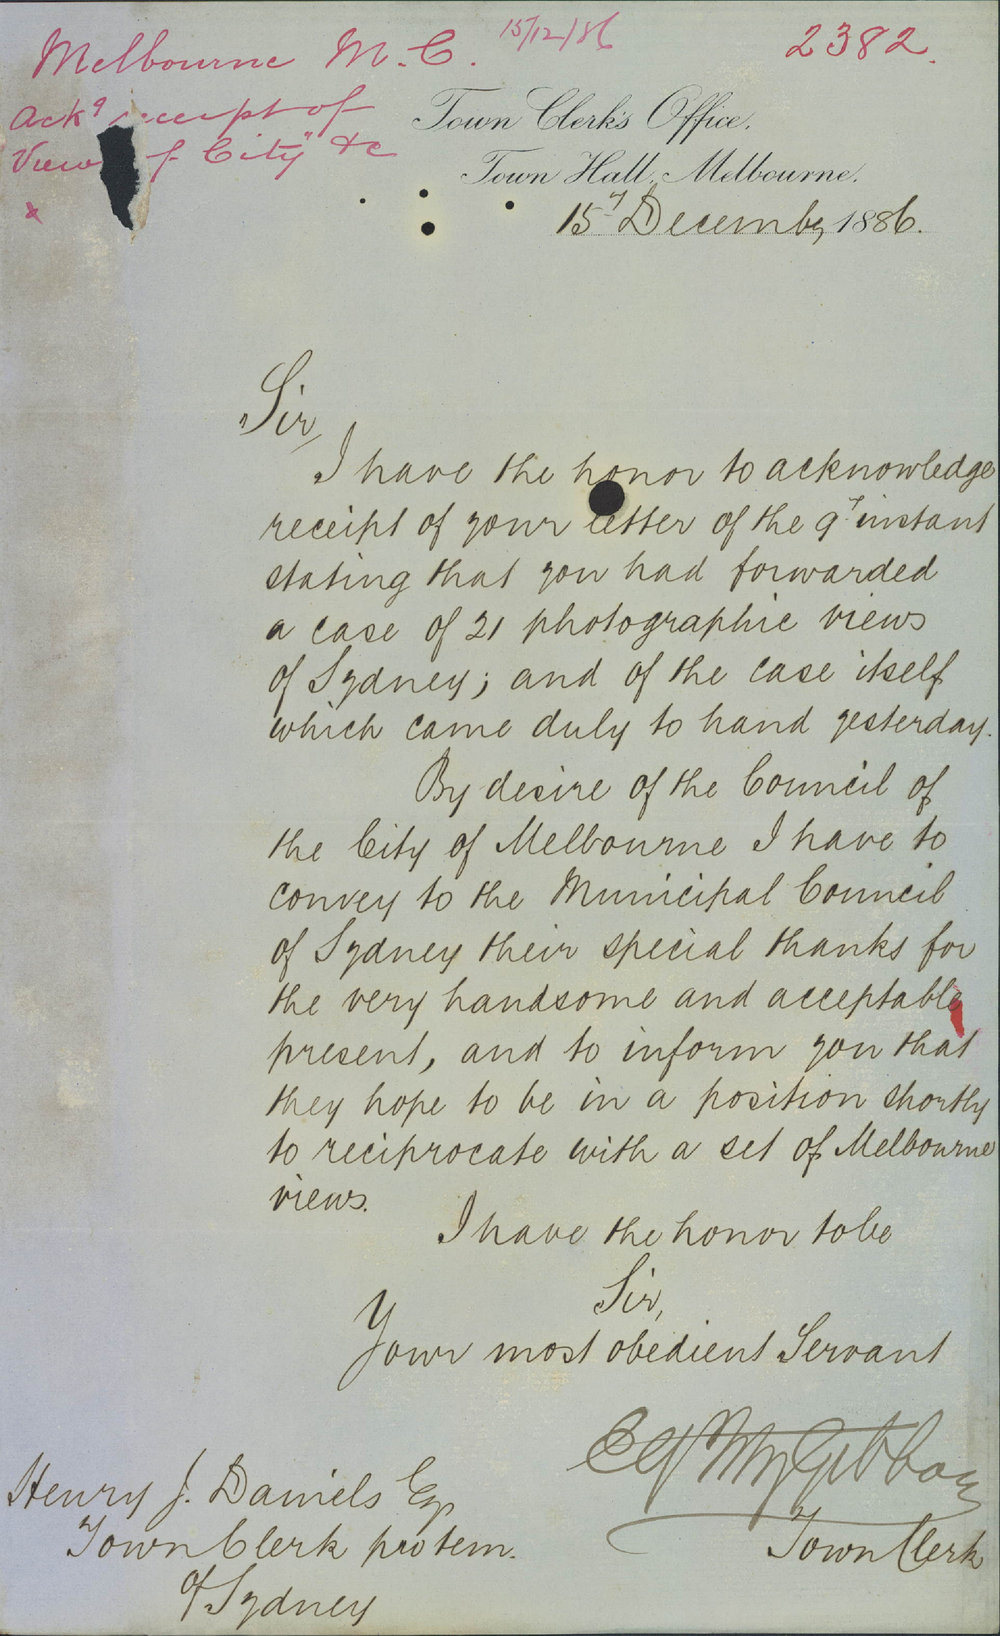 Melbourne M. C. 15/12/86
2382.
Ackg receipt of
"View of City" &c
x
Town Clerk's Office,
Town Hall, Melbourne.
15th December, 1886.
Sir,
I have the honor to acknowledge
receipt of your letter of the 9th instant
stating that you had forwarded
a case of 21 photographic views
of Sydney; and of the case itself
which came duly to hand yesterday.
By desire of the Council of
the City of Melbourne I have to
convey to the Municipal Council
of Sydney their special thanks for
the very handsome and acceptable
present, and to inform you that
they hope to be in a position shortly
to reciprocate with a set of Melbourne
views.
I have the honor to be
Sir,
Your most obedient Servant
Fitzgibbon
Town Clerk
Henry J. Daniels Esq
Town Clerk pro tem.
of Sydney